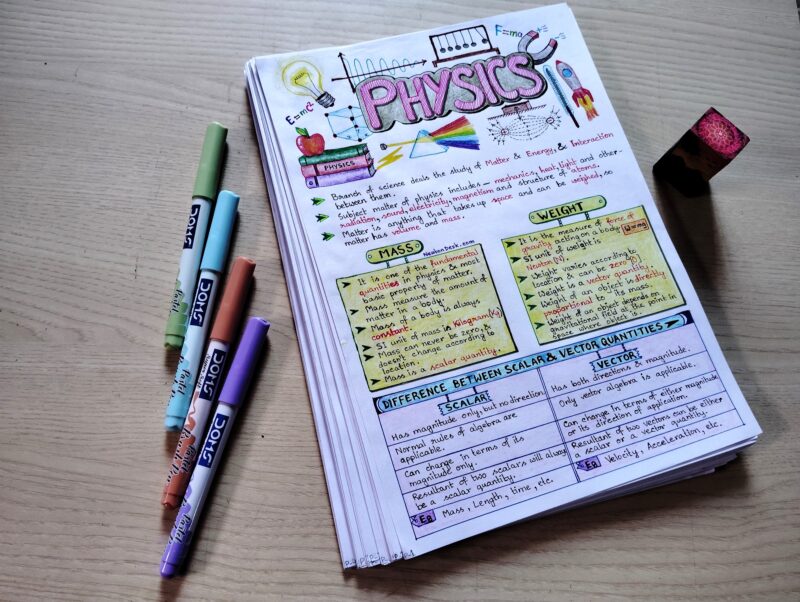 F=ma
+ =
- s
PHYSICS
E=mc²
PHYSICS
Branch of science deals the study of Matter & Energy, & Interaction
between them.
Subject matter of physics includes - mechanics, heat, light and other -
radiation, sound, electricity, magnetism and structure of atoms.
Matter is anything that takes up space and can be weighed, so
matter has volume and mass.
MASS
NewtonDesk.com
It is one of the fundamental
quantities in physics & most
basic property of matter.
Mass measure the amount of
matter in a body.
Mass of a body is always
constant.
SI unit of mass is Kilogram(Kg)
Mass can never be zero, &
doesn't change according to
location.
Mass is a scalar quantity.
WEIGHT
It is the measure of force of
gravity acting on a body W=mg
SI unit of weight is
Newton (N).
Weight varies according to
location & can be zero (0).
Weight is a vector quantity.
Weight of an object is directly
proportional to its mass.
Weight of an object depends on
gravitational field at the point in
space where object is.
DIFFERENCE BETWEEN SCALAR & VECTOR QUANTITIES
SCALAR
VECTOR
Has magnitude only, but no direction.
Has both directions & magnitude.
Normal rules of algebra are
applicable.
Only vector algebra is applicable.
Can change in terms of its
magnitude only.
Can change in terms of either magnitude
or its direction of application.
Resultant of two scalars will always
be a scalar quantity.
Resultant of two vectors can be either
a scalar or a vector quantity.
Eg Mass, Length, time, etc.
Eg Velocity, Acceleration, etc.
DOMS
Pastel
DOMS
Pastel
DOMS
Brush Pen
DOMS
Pastel
Brush Pen